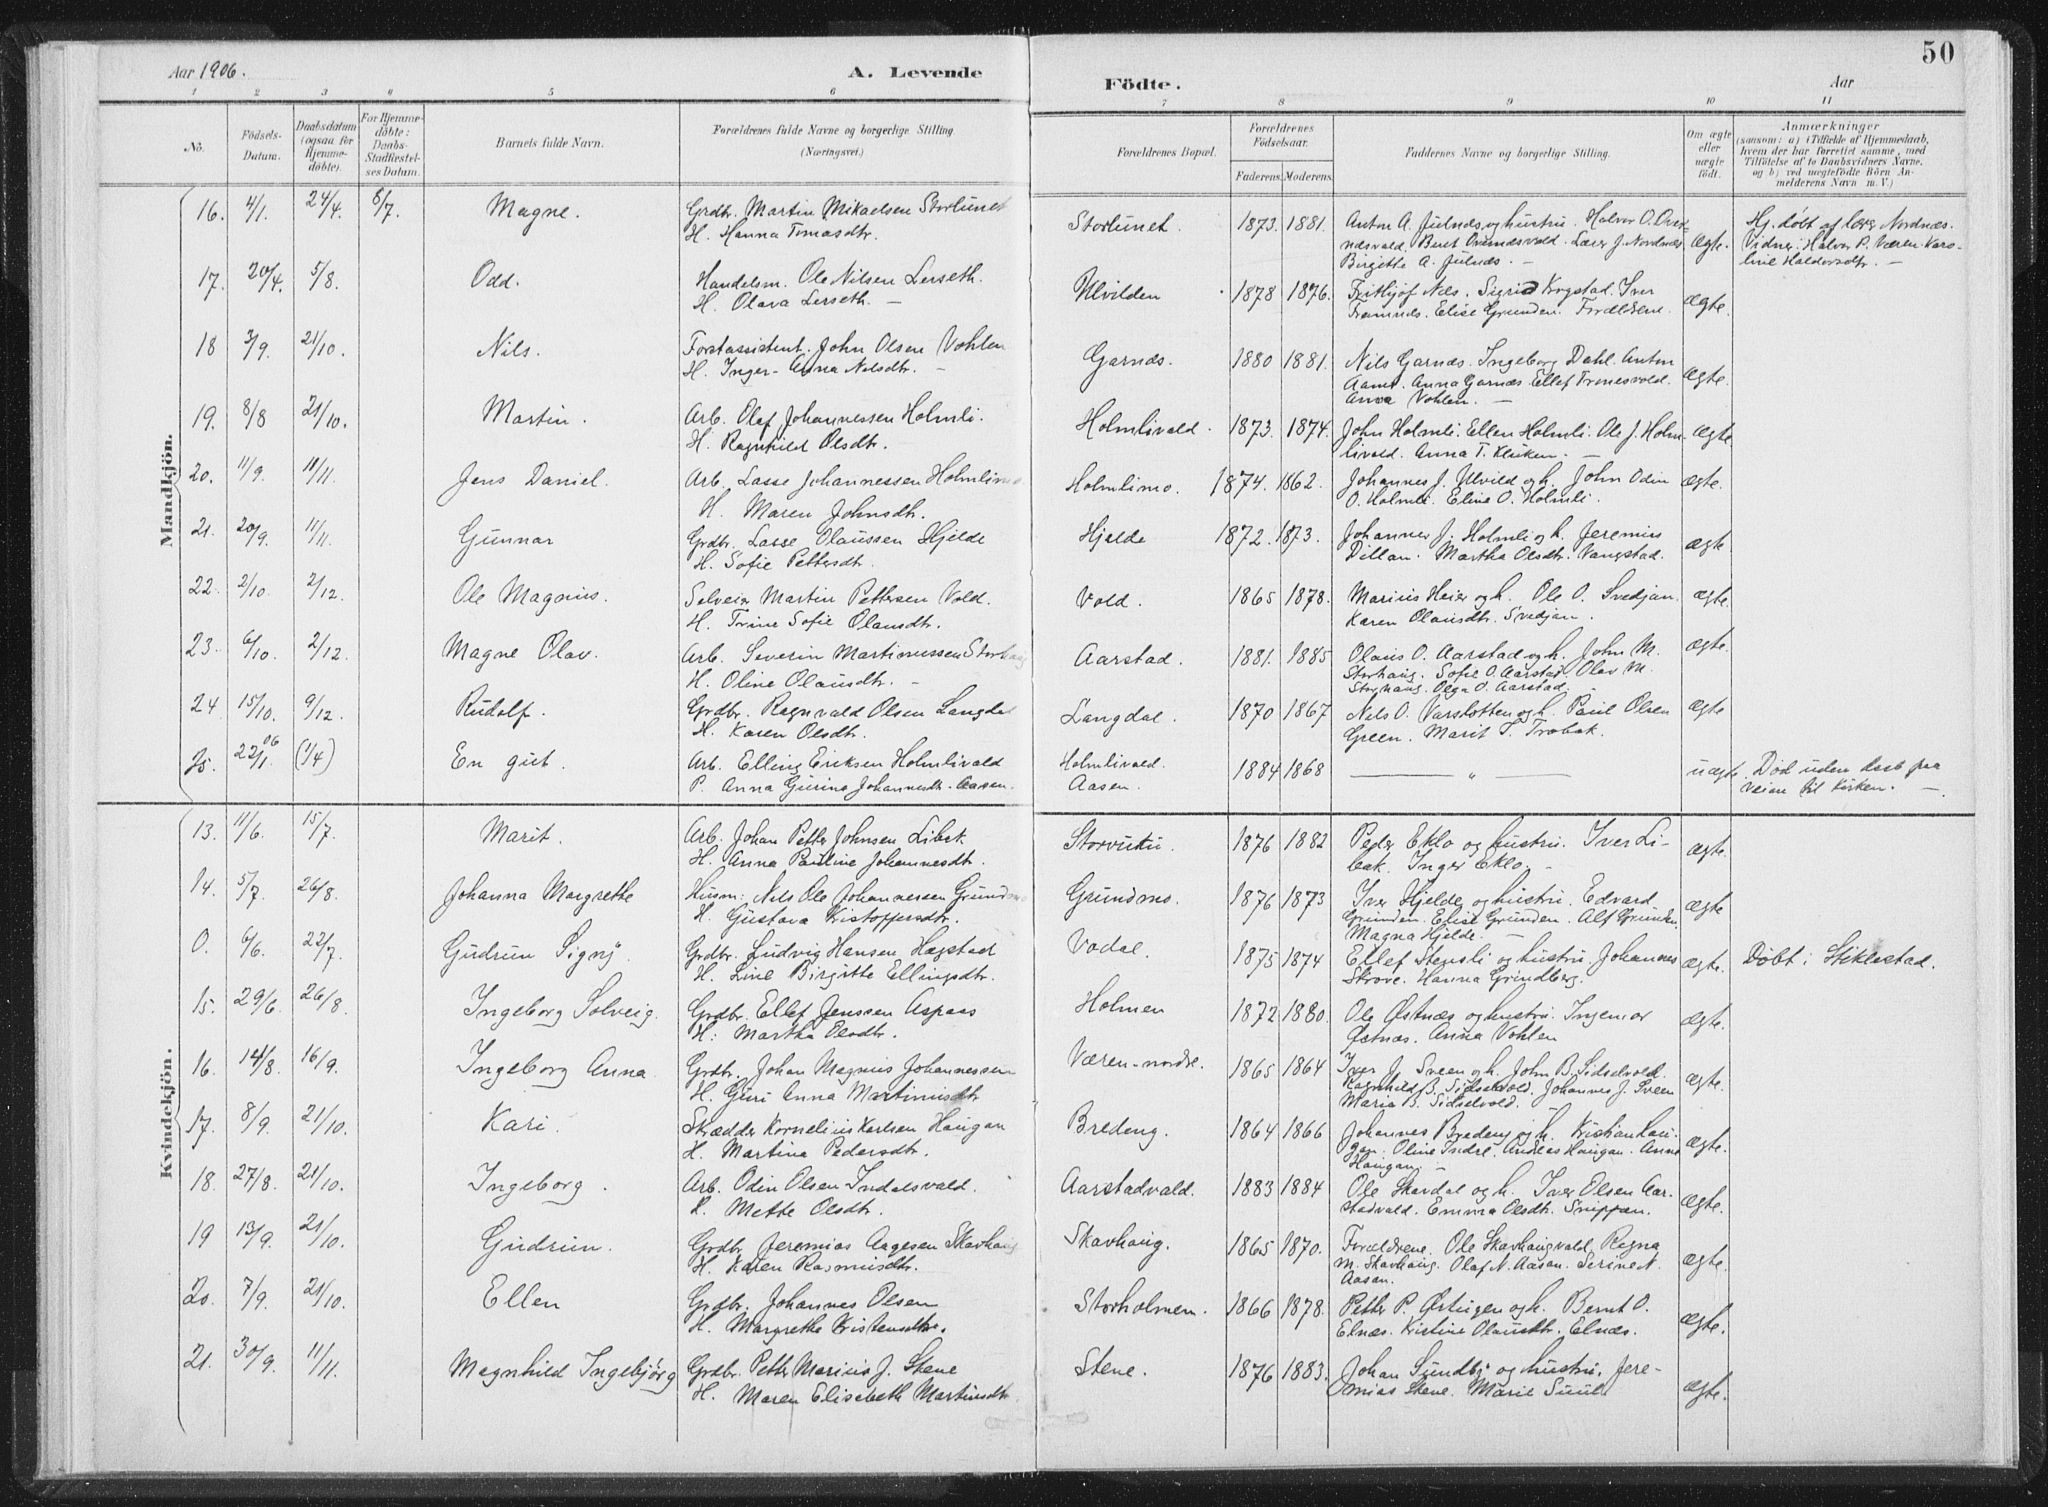 Aar 1906.
A. Levende
Födte.
Aar
50
1 2 3 6 5 6 7 8 9 10 11
No.
Födsels-Datum.
Daabsdatum (ogsaa for Hjemmedöbte).
For Hjemmedöbte: Daabs-Stadfæstelses Datum.
Barnets fulde Navn.
Forældrenes fulde Navne og borgerlige Stilling
(Næringsvei.)
Forældrenes Bopæl.
Forældrenes Födselsaar.
Faderens. Moderens.
Faddernes Navne og borgerlige Stilling.
Om ægte eller uægte födt.
Anmærkninger
(saasom: a) i Tilfælde af Hjemmedaab, hvem der har forrettet samme, med Tilföielse af to Daabsvidners Navne, og b) ved uægtefödte Börn Anmelderens Navn m. V.)
Mandkjön.
16. 4/1. 24/4. 8/7. Magne. Grdbr. Martin Mikaelsen Storlunet Storlunet 1873. 1881. Anton A. Julnæs og hustru. Halvor O. Over- ægte. Hj. døbt af lærer Nordnæs.
H. Hanna Tomasdtr. næsvald. Berit Overnæsvald. Lærer J. Nordnæs Vidner: Halvor P. Væren. Karo-
Birgitte A. Julnæs. — line Haldorsdtr. —
17. 20/4. 5/8. Odd. Handelsm. Ole Nilsen Lerseth. Ulvilden 1878 1876. Frithjof Næs. Sigrid Krogstad. Iver ægte.
H. Olava Lerseth. — Tramnæs. Elise Grunden. Forældrene.
18 3/9. 21/10. Nils. Forstassistent. John Olsen Vohlen Garnæs. 1880 1881. Nils Garnæs. Ingeborg Dahl. Anton ægte.
H. Inger-Anna Nilsdtr. — Aamo. Anna Garnæs. Ellef Tronesvold.
Anna Vohlen. —
19. 8/8 21/10. Martin. Arb. Olaf Johannessen Holmli. Holmlivald. 1873. 1874. John Holmli. Ellen Holmli. Ole J. Holm- ægte
H. Ragnhild Olsdtr. livald. Anna T. Kluken. —
20. 11/9. 11/11. Jens Daniel. Arb. Lasse Johannessen Holmlimo Holmlimo. 1874. 1862. Johannes J. Ulvild og h. John Odin ægte.
H. Maren Johnsdtr. O. Holmli. Eline O. Holmli.
21. 20/9. 11/11. Gunnar Grdbr. Lasse Olaussen Hjelde Hjelde 1872. 1873. Johannes J. Holmli og h. Jeremias ægte
H. Sofie Pettersdtr. Dillan. Martha Olsdtr. Vangstad.
22. 2/10. 2/12. Ole Magnus. Selveier Martin Pettersen Vold. Vold. 1865 1878. Marius Heier og h. Ole O. Svedjan. ægte.
H. Trine Sofie Olausdtr. Karen Olausdtr. Svedjan.
23. 6/10. 2/12. Magne Olav. Arb. Severin Martinussen Storhaug Aarstad. 1881. 1885 Olaus O. Aarstad og h. John M. ægte.
H. Oline Olausdtr. — Storhaug. Sofie O. Aarstad. Olav M.
Storhaug. Olga O. Aarstad.
24 15/10. 9/12. Rudolf. Grdbr. Ragnvald Olsen Langdal Langdal. 1870 1867 Nils O. Varslotten og h. Paul Olsen ægte
H. Karen Olsdtr. Green. Marit T. Trøbak.
25. 22/1 06 (1/4) En gut. Arb. Elling Eriksen Holmlivald Holmlivald. 1884 1868 — " — uægte. Død uden daab paa
P. Anna Gurina Johannesdtr. Aasen. Aasen. veien til kirken. —
Kvindekjön.
13. 11/6. 15/7. Marit. Arb. Johan Petter Johnsen Libak Storvuku 1876 1882 Peder Eklo og hustru. Iver Li- ægte.
H. Anna Pauline Johannesdtr. bak. Inger Eklo. —
14. 5/7. 26/8. Johanna Margrethe Husm. Nils Ole Johannessen Grundmo Grundmo. 1876 1873 Iver Hjelde og hustru. Edvard ægte
H. Gustava Kristoffersdtr. Grunden. Elise Grunden. Alf Grunden.
Magna Hjelde. —
0. 6/6. 22/7. Gudrun Signý. Grdbr. Ludvig Hansen Hægstad Vodal. 1875 1874 Ellef Stensli og hustru. Johannes ægte. Døbt i Stiklestad.
H. Line Birgitte Ellingsdtr. Skrove. Hanna Grindberg.
15. 29/6. 26/8. Ingeborg Solveig. Grdbr. Ellef Jenssen Aspaas Holmen 1872 1880. Ole Østnæs og hustru. Ingemar ægte.
H: Martha Olsdtr. Østnæs. Anna Vohlen
16. 14/8. 16/9. Ingeborg Anna Grdbr. Johan Magnus Johannessen Væren-nordre. 1865 1864 Iver J. Sveen og h. John B. Sidselvold. ægte.
H. Guri Anna Martinusdtr Ragnhild B. Sidselvold. Johannes J. Sveen
Maria B. Sidselvold.
17. 8/9. 21/10. Kari. Skrædder Kornelius Karlsen Haugan Bredeng. 1864 1866 Johannes Bredeng og h. Kristian Hau- ægte.
H. Martina Pedersdtr. gan. Oline Indre. Andreas Haugan. Anna
Haugan. —
18. 27/8. 21/10. Ingeborg. Arb. Odin Olsen Indalsvald. Aarstadvald. 1883 1884 Ole Skavdal og h. Iver Olsen Aar- ægte.
H. Mette Olsdtr. stadvald. Emma Olsdtr. Snippan.
19 13/9. 21/10. Gudrun. Grdbr. Jeremias Aagesen Skavhaug Skavhaug. 1865 1870. Forældrene. Ole Skavhaugvald. Ragna ægte.
H. Karen Rasmusdtr. M. Skavhaug. Olaf N. Aasan. Serine N.
Aasan.
20. 7/9. 21/10. Ellen Grdbr. Johannes Olsen Storholmen. 1866 1878. Petter P. Østugen og h. Bernt O. ægte.
H. Margrethe Kristensdtr. Elnæs. Kristine Olausdtr. Elnæs.
21. 30/9. 11/11. Magnhild Ingebjørg Grdbr. Petter Marius J. Stene Stene. 1876 1883. Johan Sundby og hustru. Jere- ægte.
H. Maren Elisabeth Martinsdtr. mias Stene. Marie Suul.